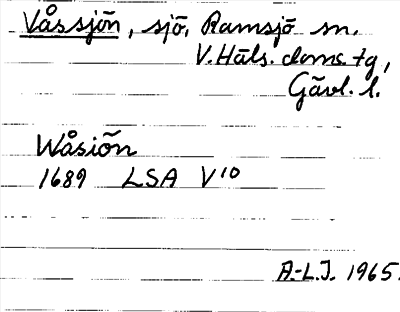 Våssjön, sjö, Ramsjö sn,
V. Häls. doms. tg,
Gävl. l.
Wåsiön
1689 LSA V¹⁰
A.-L.J. 1965.